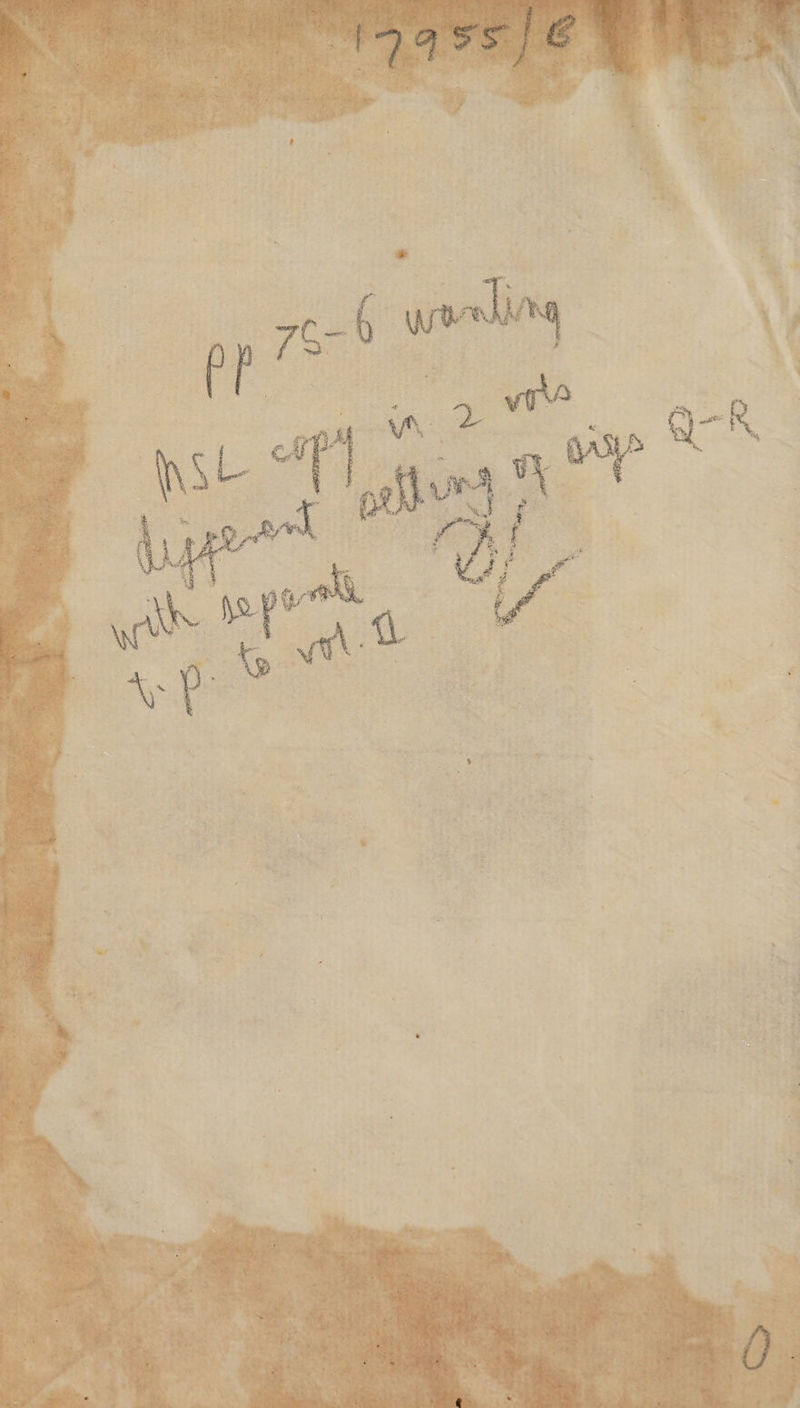 17955/B
pp 75-6 wanting
MSL copy in 2 vols
different setting of sigs Q-R
with separate
t.p. to vol. II
0